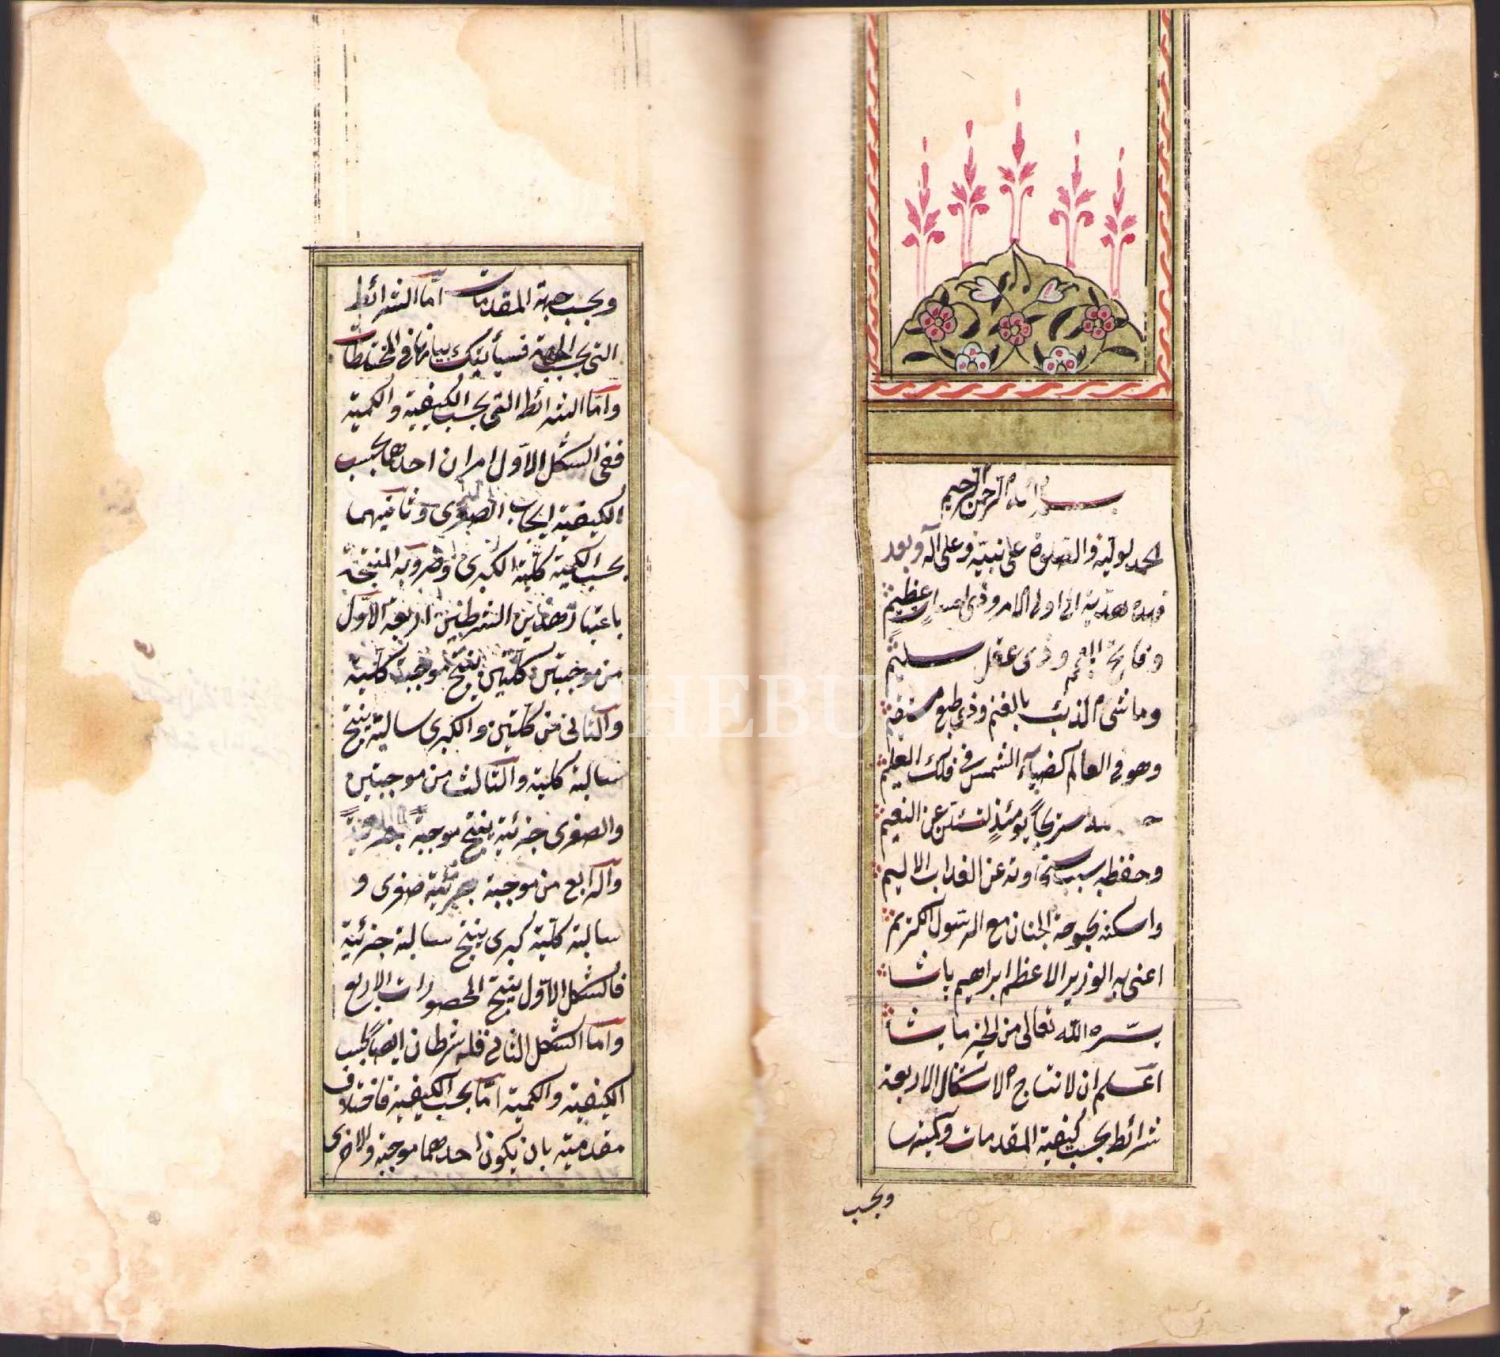 بسم الله الرحمن الرحيم
الحمد لوليه والصلوة على نبيه وعلى آله وبعد
فهذه هدية الى اولى الامر وذى احسان عظيم
وذى عقل سليم
وما شىء الذئب بالغنم وذى طبع مستقيم
وهو فى العالم كضياء الشمس فى فلك العليم
يومئذ لتسئلن عن النعيم
وحفظه عن العذاب الاليم
واسكنه بحبوحة الجنان مع الرسول الكريم
اعنى به الوزير الاعظم ابراهيم پاشا
يسره الله تعالى من الخير ما يشا
اعلم ان لانتاج الاشكال الاربعة
شرائط بحسب كيفية المقدمات وكميتها
وبحسب
وبحسب جهة المقدمات اما الشرائط
التى بحسب الجهة فسيأتيك بيانها فى المختلطات
واما الشرائط التى بحسب الكيفية والكمية
ففى الشكل الاول امران احدهما بحسب
الكيفية ايجاب الصغرى وثانيهما
بحسب الكمية كلية الكبرى وضروبه المنتجة
باعتبار هذين الشرطين اربعة الاول
من موجبتين كليتين ينتج موجبة كلية
والثانى من كليتين والكبرى سالبة ينتج
سالبة كلية والثالث من موجبتين
والصغرى جزئية ينتج موجبة جزئية
والرابع من موجبة جزئية صغرى و
سالبة كلية كبرى ينتج سالبة جزئية
فالشكل الاول ينتج المحصورات الاربع
واما الشكل الثانى فله شرطان ايضا بحسب
الكيفية والكمية اما بحسب الكيفية فاختلاف
مقدمتيه بان يكون احدهما موجبة والاخرى